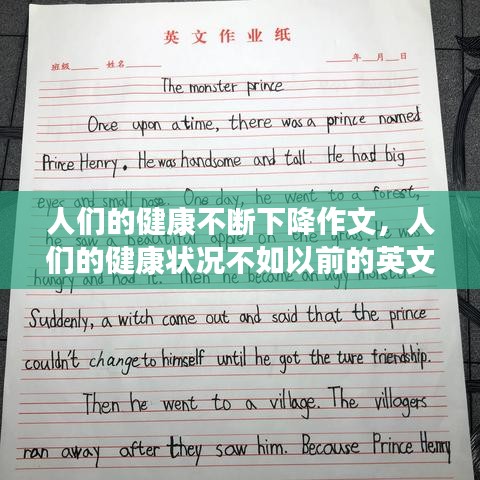 英文作业纸
班级 姓名 年 月 日
The monster prince
Once upon a time, there was a prince named
Prince Henry. He was handsome and tall. He had big
eyes and small nose. One day, he went to a forest,
he saw a beautiful apple
人们的健康不断下降作文，人
们的健康状况不如以前的英文
hungry and had it. Then he became an ugly monster.
Suddenly, a witch came out and said that the prince
couldn't change to himself until he got the ture friendship.
Then he went to a village. The villagers
ran away after they saw him. Because Prince Henry